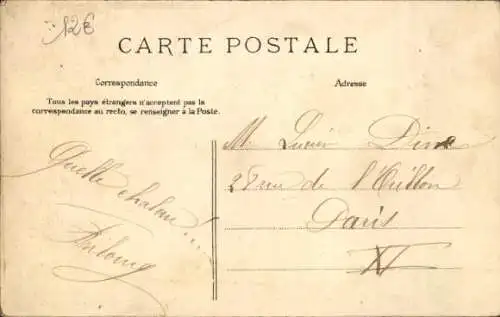 12€
CARTE POSTALE
Correspondance
Adresse
Tous les pays étrangers n'acceptent pas la
correspondance au recto, se renseigner à la Poste.
Quelle chaleur!...
M. Lucien
28 rue de l'Orillon
Paris
XI